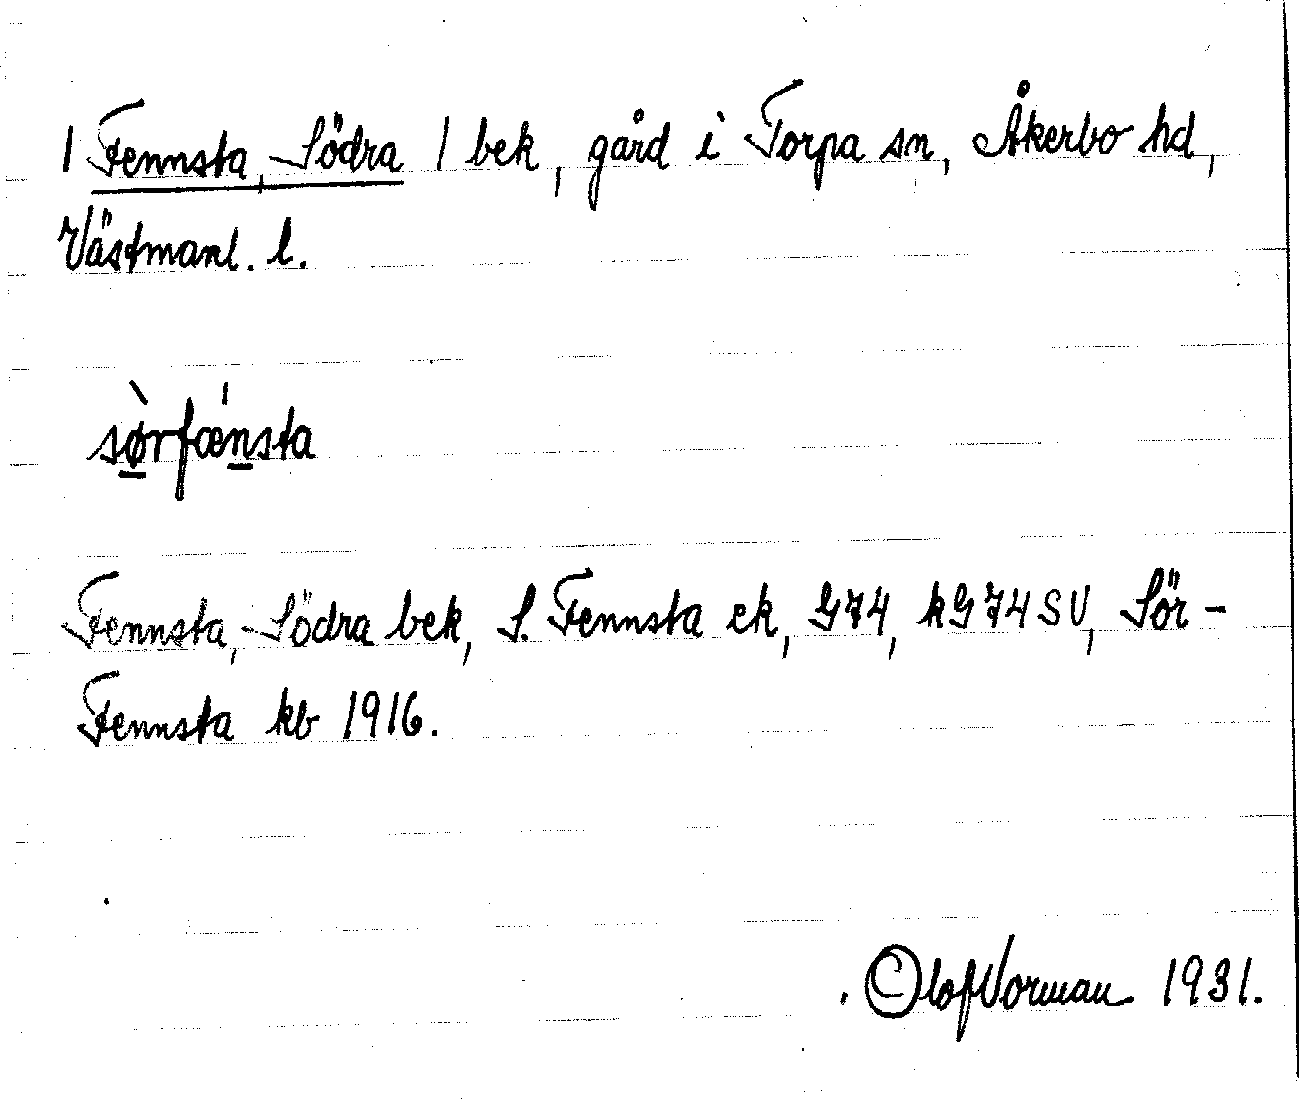 | Fennsta, Södra | bek, gård i Torpa sn, Åkerbo hd,
Västmanl. l.
sø̀rfǽnsta
Fennsta, Södra bek, S. Fennsta ek, G74, kG74SV, Sör-
Fennsta kb 1916.
Olof Vorman 1931.